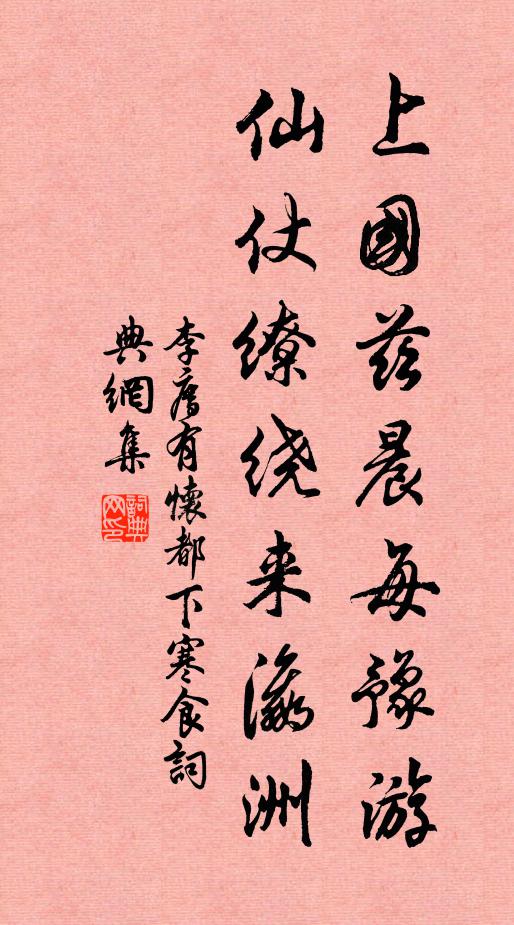 上國茲晨每豫游
仙仗缭绕来瀛洲
李廌有懷都下寒食詞
典網集
詞典网印